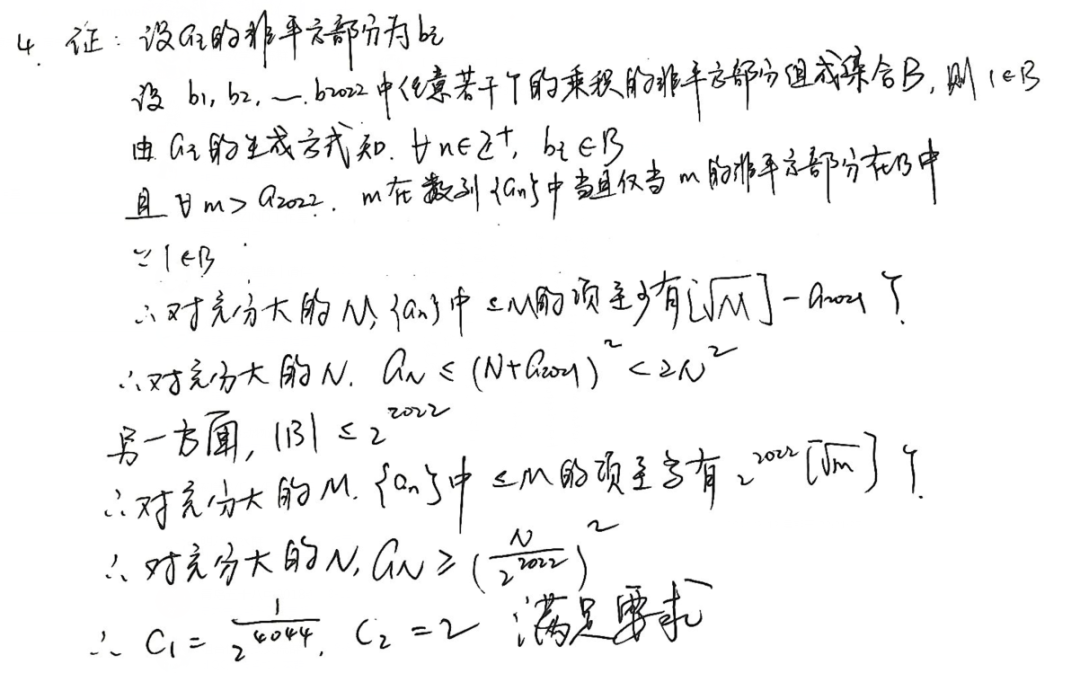 4. 证：设 aᵢ 的非平方部分为 bᵢ
设 b₁, b₂, …, b₂₀₂₂ 中任意若干个的乘积的非平方部分组成集合B, 则 1∈B
由 aᵢ 的生成方式知. ∀n∈Z⁺, bᵢ∈B
且 ∀m>a₂₀₂₂. m在数列{aₙ}中当且仅当 m 的非平方部分在B中
∵1∈B
∴对充分大的M, {aₙ}中≤M的项至少有[√M]-a₂₀₂₁个.
∴对充分大的N. a_N ≤ (N+a₂₀₂₁)² < 2N²
另一方面, |B| ≤ 2²⁰²²
∴对充分大的M. {aₙ}中≤M的项至多有 2²⁰²²[√m]个.
∴对充分大的N, a_N ≥ (N/2²⁰²²)²
∴ C₁ = 1/2⁴⁰⁴⁴, C₂ = 2 满足要求